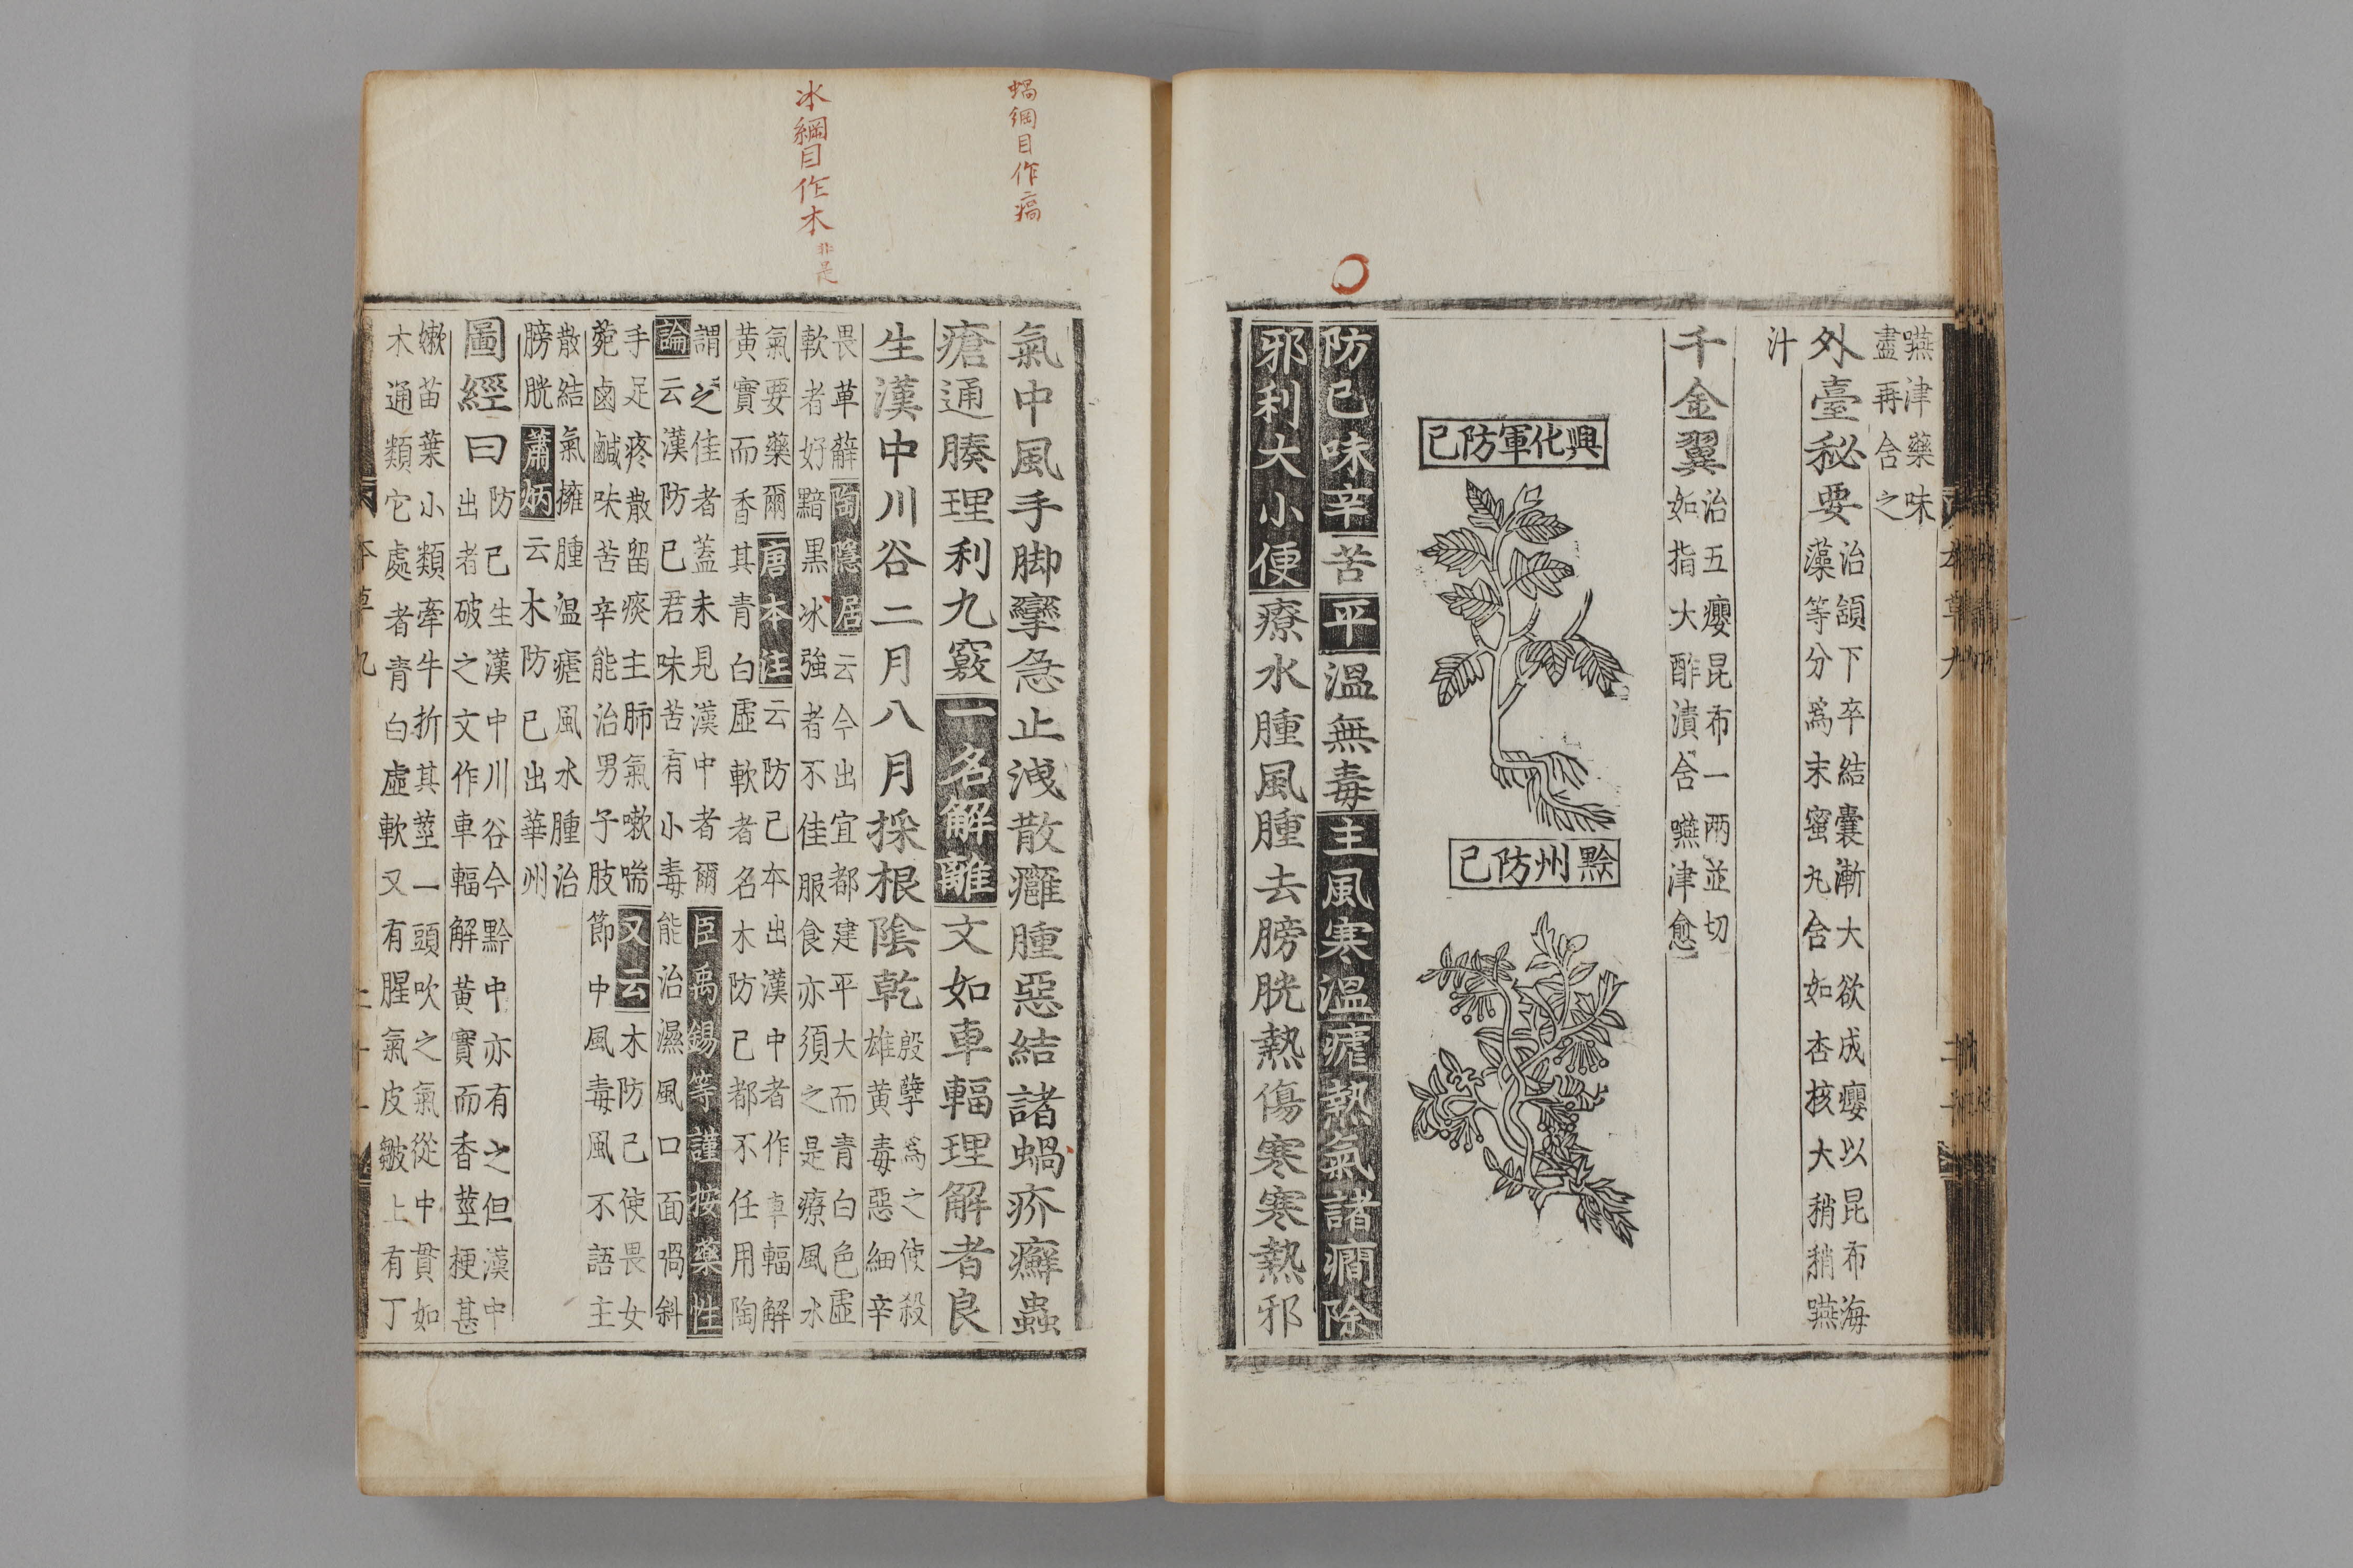 嚥津藥味
盡再含之
外臺秘要治頷下卒結囊漸大欲成癭以昆布海
藻等分爲末蜜丸含如杏核大稍稍嚥
汁
千金翼治五癭昆布一兩並切
如指大酢漬含嚥津愈
興化軍防己
黔州防己
防己味辛苦平溫無毒主風寒溫瘧熱氣諸癎除
邪利大小便療水腫風腫去膀胱熱傷寒寒熱邪
蝸綱目作瘑
冰綱目作木非是
氣中風手脚攣急止洩散癰腫惡結諸蝸疥癬蟲
瘡通腠理利九竅一名解離文如車輻理解者良
生漢中川谷二月八月採根陰乾殷孽爲之使殺
雄黃毒惡細辛
畏萆薢陶隱居云今出宜都建平大而青白色虛
軟者好黯黑冰強者不佳服食亦須之是療風水
氣要藥爾唐本注云防己本出漢中者作車輻解
黃實而香其青白虛軟者名木防己都不任用陶
謂之佳者蓋未見漢中者爾臣禹錫等謹按藥性
論云漢防己君味苦有小毒能治濕風口面喎斜
手足疼散留痰主肺氣嗽喘又云木防己使畏女
菀鹵鹹味苦辛能治男子肢節中風毒風不語主
散結氣擁腫溫瘧風水腫治
膀胱蕭炳云木防己出華州
圖經曰防己生漢中川谷今黔中亦有之但漢中
出者破之文作車輻解黃實而香莖梗甚
嫰苗葉小類牽牛折其莖一頭吹之氣從中貫如
木通類它處者青白虛軟又有腥氣皮皺上有丁
本草九